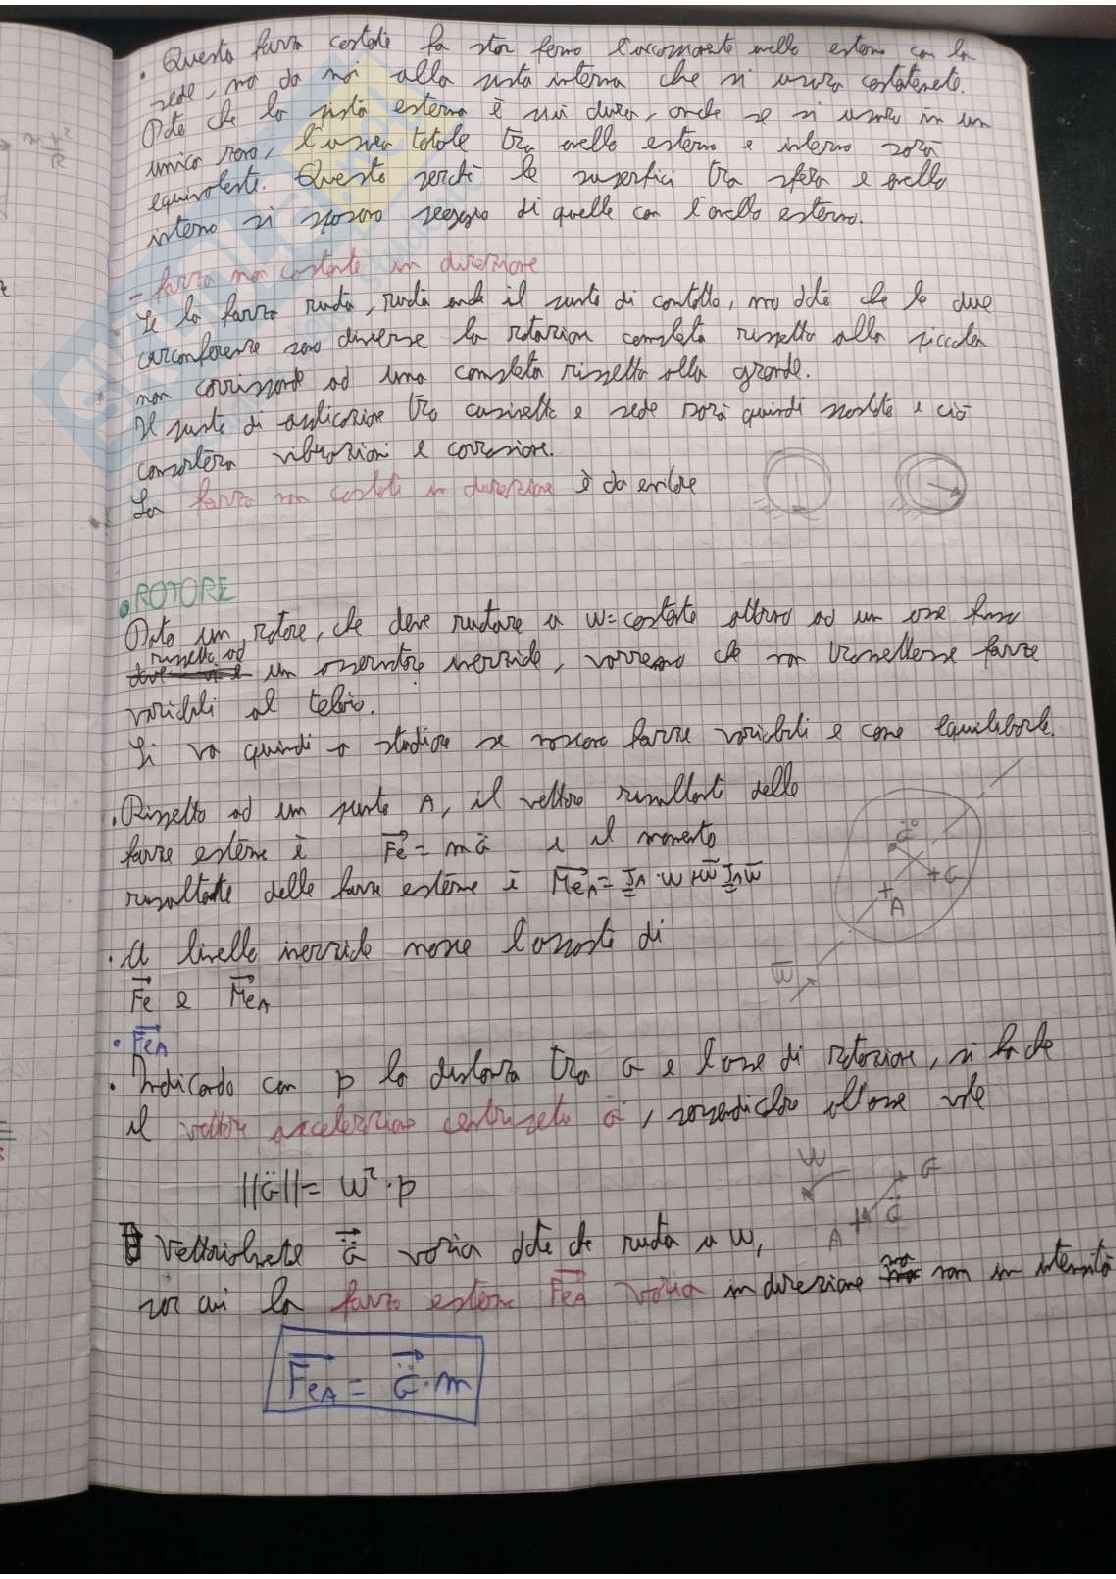 . Questa forza costante fa star fermo l'accoppiamento anello esterno con la
sede, ma dà noi alla pista interna che si usura costantemente.
Dato che la pista esterna è più dura, anche se si usura in un
unico posto, l'usura totale tra anello esterno e interno sarà
equivalente. Questo perché le superfici tra sfera e anello
interno si sposano peggio di quelle con l'anello esterno.
- forza non costante in direzione
Se la forza ruota, ruota anche il punto di contatto, ma dato che le due
circonferenze sono diverse la rotazione completa rispetto alla piccola
non corrisponde ad una completa rispetto alla grande.
Il punto di applicazione tra cuscinetto e sede sarà quindi mobile e ciò
comporterà vibrazioni e corrosione.
La forza non costante in direzione è da evitare
• ROTORE
Dato un rotore, che deve ruotare a W=costante attorno ad un asse fisso
rispetto ad un osservatore inerziale, vorremmo che non trasmettesse forze
variabili al telaio.
Si va quindi a studiare se nascono forze variabili e come equilibrarle.
. Rispetto ad un punto A, il vettore risultante delle
forze esterne è Fe = mG̈ e il momento
risultante delle forze esterne è MeA = JA · ẇ + w̄ JA w̄
G̈
G
A
w̄
. A livello inerziale nasce l'opposto di
Fe e MeA
• FeA
. Indicando con p la distanza tra G e l'asse di rotazione, si ha che
il vettore accelerazione centripeta G̈, perpendicolare all'asse vale
||G̈|| = W² · p
W
G
G̈
A
Vettorialmente G̈ varia dato che ruota a W,
per cui la forza esterna FeA varia in direzione ma non in intensità
FeA = G̈ · m